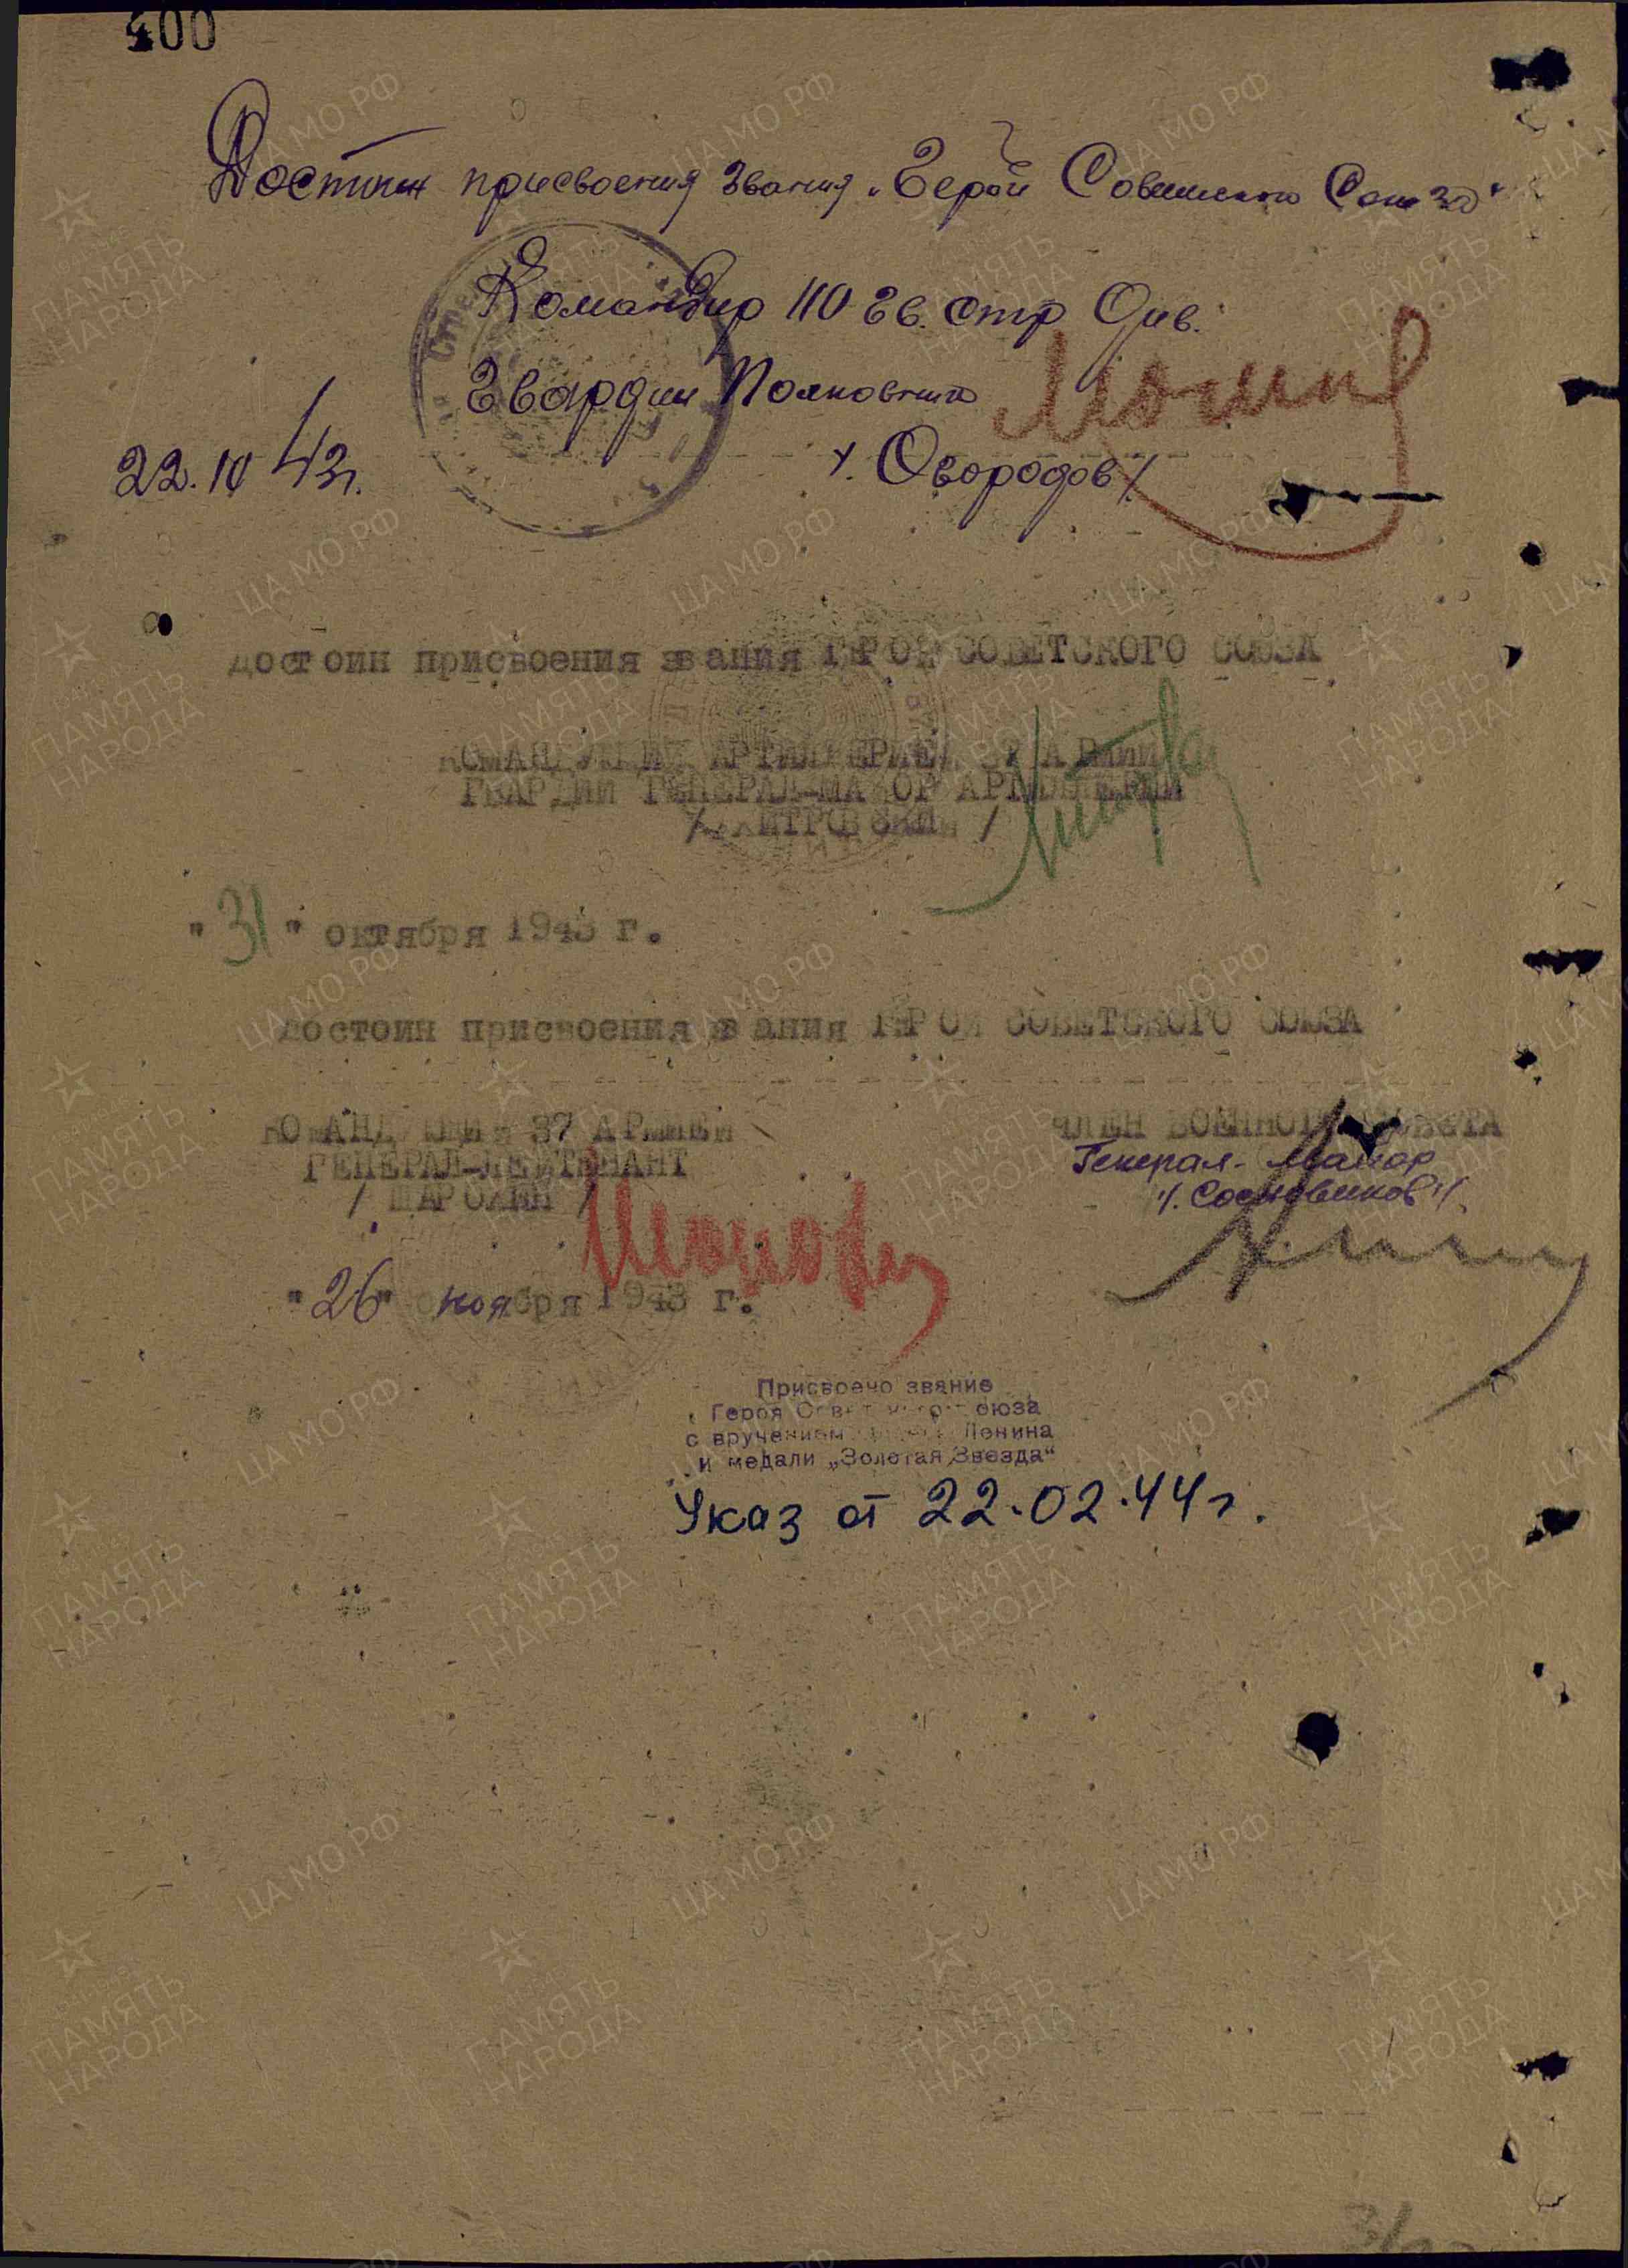 400
Достоин присвоения звания „Герой Советского Союза"
Командир 110 гв. стр Див.
Гвардии Полковник
/. Огородов /.
22.10 43г.
достоин присвоения звания ГЕРОЯ СОВЕТСКОГО СОЮЗА
КОМАНДУЮЩИЙ АРТИЛЛЕРИЕЙ 37 АРМИИ
ГВАРДИИ ГЕНЕРАЛ-МАЙОР АРТИЛЛЕРИИ
"31" октября 1943 г.
достоин присвоения звания ГЕРОЯ СОВЕТСКОГО СОЮЗА
КОМАНДУЮЩИЙ 37 АРМИЕЙ
ГЕНЕРАЛ-ЛЕЙТЕНАНТ
/ ШАРОХИН /
ЧЛЕН ВОЕННОГО СОВЕТА
Генерал-Майор
/. Сосновиков /.
"26" ноября 1943 г.
Присвоено звание
Героя Советского Союза
с вручением Ленина
и медали „Золотая Звезда"
Указ от 22.02.44г.
ПАМЯТЬ НАРОДА
ЦА МО РФ